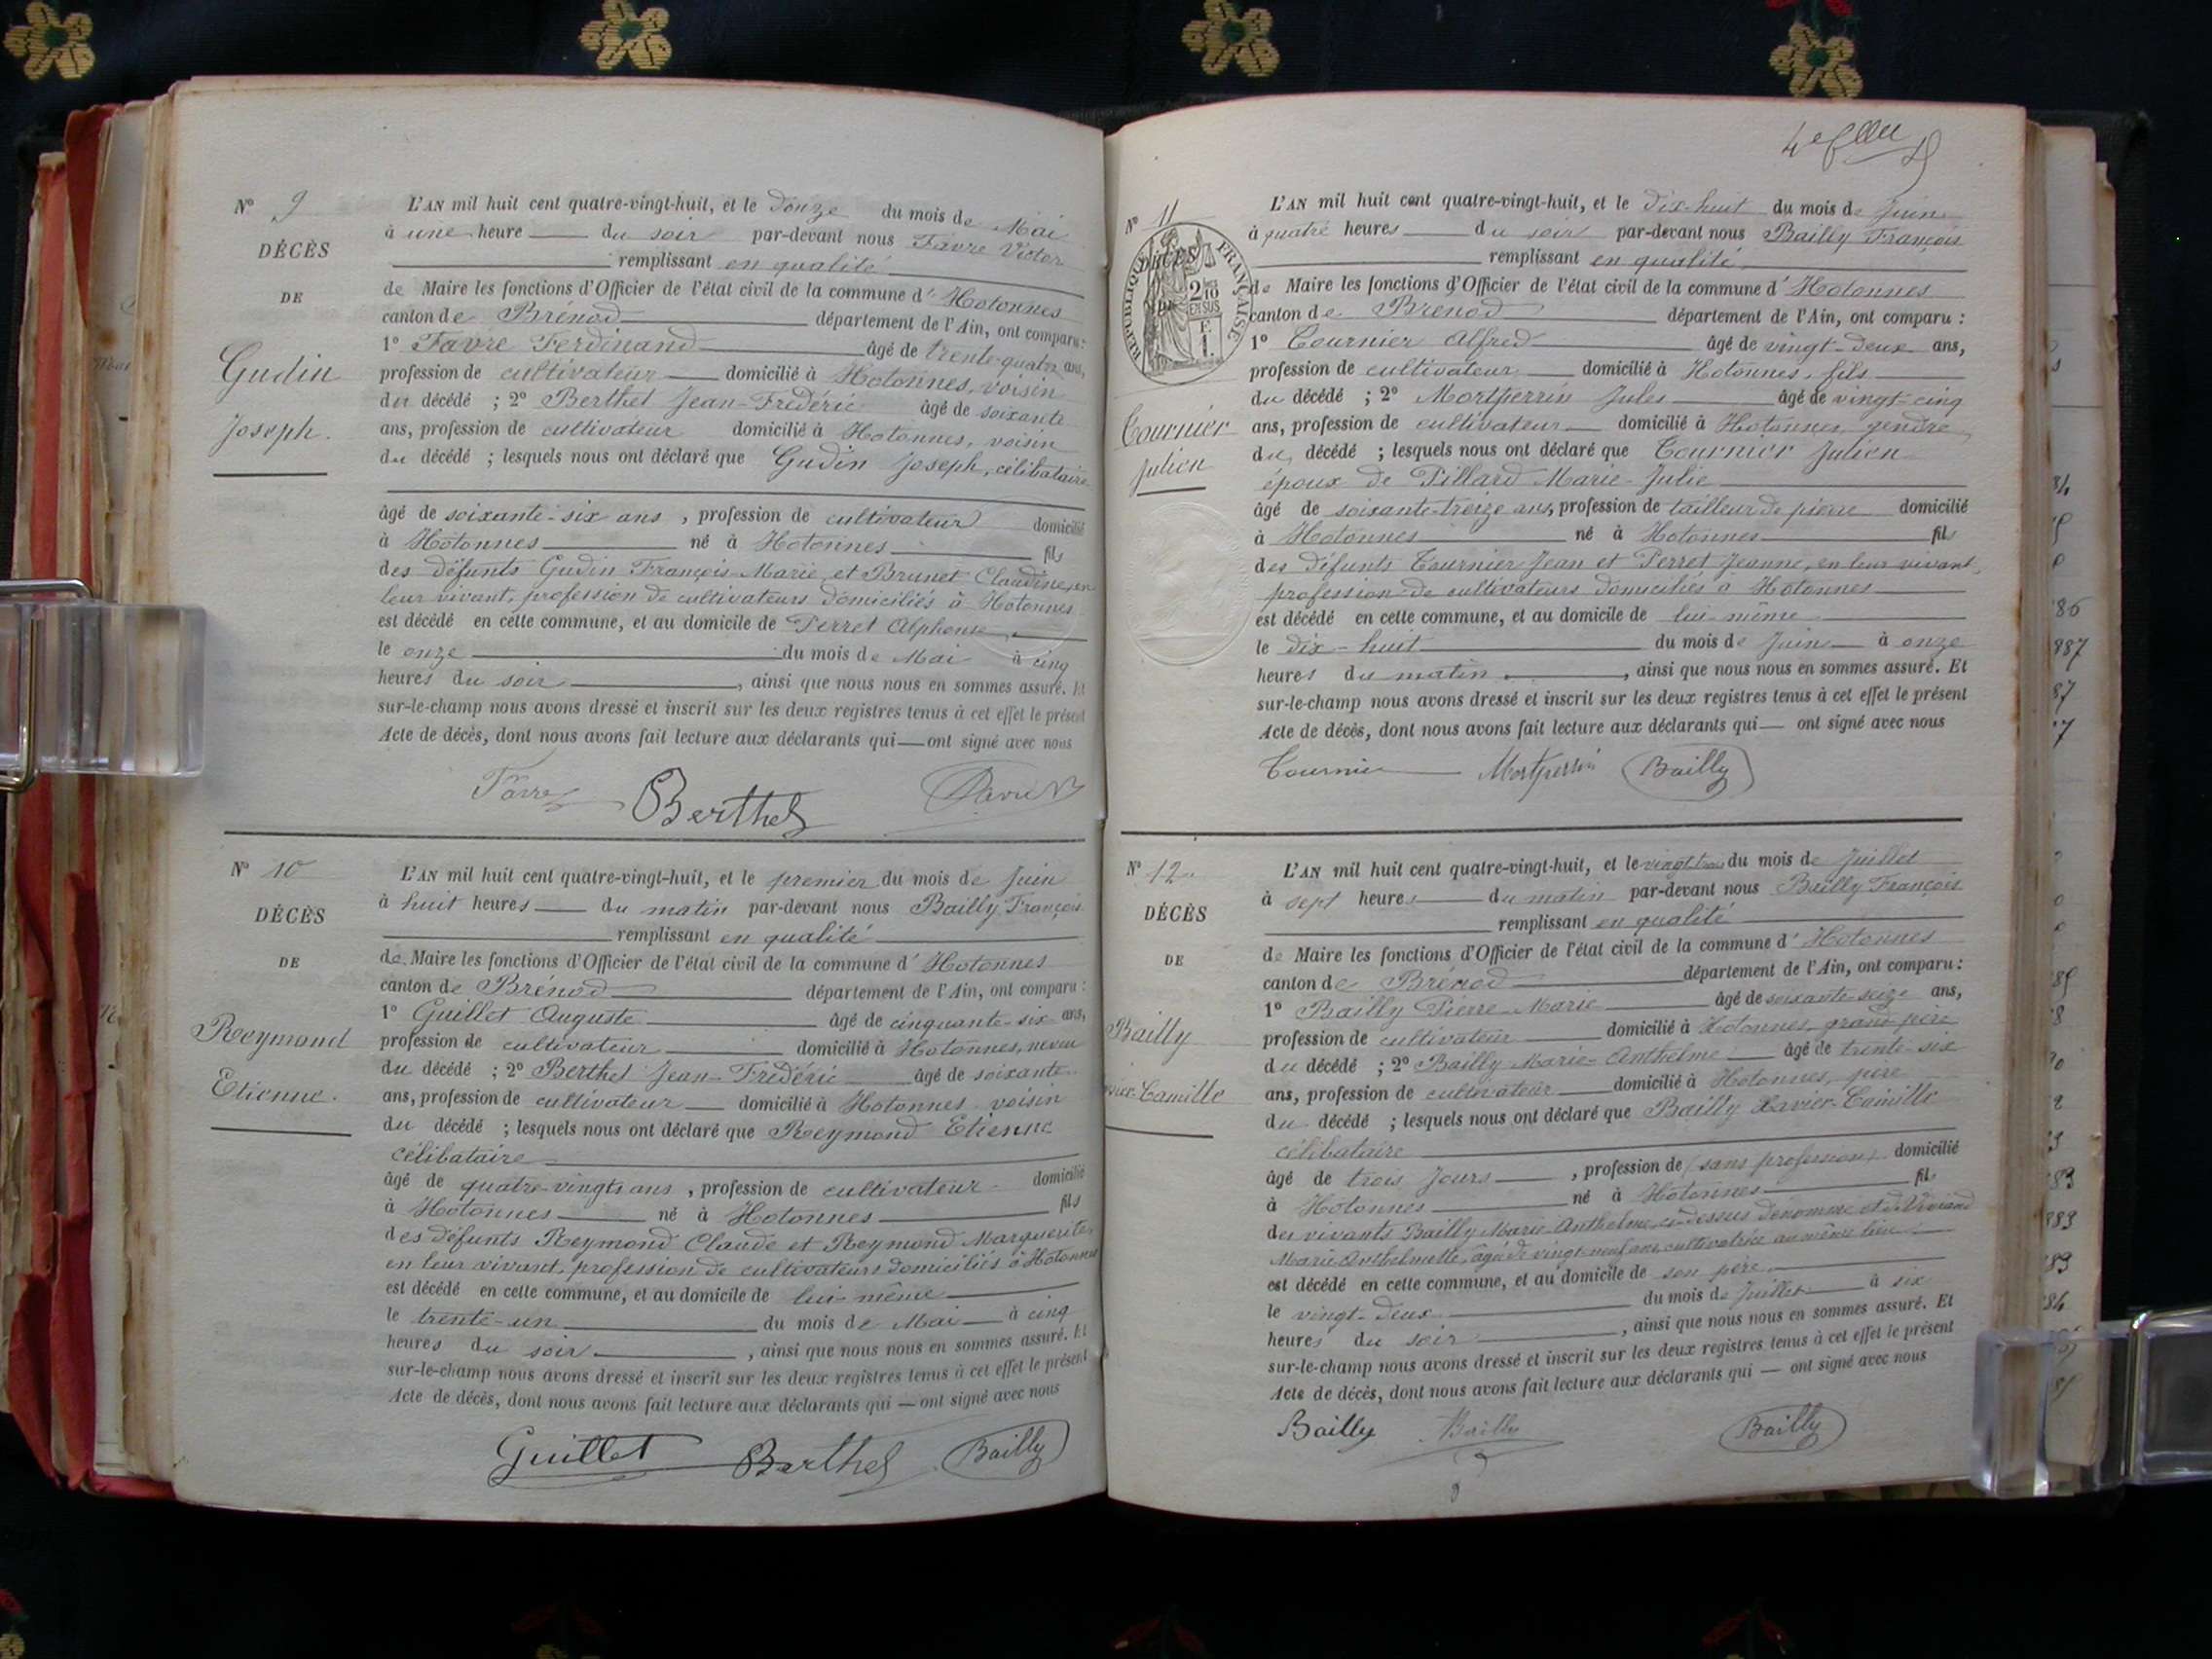 N° 9
DÉCÈS
DE
Gudin
Joseph.
L'AN mil huit cent quatre-vingt-huit, et le douze du mois de Mai
à une heure du soir par-devant nous Favre Victor
remplissant en qualité
de Maire les fonctions d'Officier de l'état civil de la commune d'Hotonnes
canton de Brénod département de l'Ain, ont comparu :
1° Favre Ferdinand âgé de trente-quatre ans,
profession de cultivateur domicilié à Hotonnes, voisin
du décédé ; 2° Berthet Jean-Frédéric âgé de soixante
ans, profession de cultivateur domicilié à Hotonnes, voisin
du décédé ; lesquels nous ont déclaré que Gudin Joseph, célibataire
âgé de soixante-six ans, profession de cultivateur domicilié
à Hotonnes né à Hotonnes fils
des défunts Gudin François-Marie et Brunet Claudine, en
leur vivant, profession de cultivateurs domiciliés à Hotonnes
est décédé en cette commune, et au domicile de Perret Alphonse
le onze du mois de Mai à cinq
heures du soir, ainsi que nous nous en sommes assuré. Et
sur-le-champ nous avons dressé et inscrit sur les deux registres tenus à cet effet le présent
Acte de décès, dont nous avons fait lecture aux déclarants qui — ont signé avec nous
Favre Berthet Favre
N° 10
DÉCÈS
DE
Reymond
Etienne.
L'AN mil huit cent quatre-vingt-huit, et le premier du mois de Juin
à huit heures du matin par-devant nous Bailly François
remplissant en qualité
de Maire les fonctions d'Officier de l'état civil de la commune d'Hotonnes
canton de Brénod département de l'Ain, ont comparu :
1° Guillet Auguste âgé de cinquante-six ans,
profession de cultivateur domicilié à Hotonnes, neveu
du décédé ; 2° Berthet Jean-Frédéric âgé de soixante
ans, profession de cultivateur domicilié à Hotonnes voisin
du décédé ; lesquels nous ont déclaré que Reymond Etienne
célibataire
âgé de quatre-vingts ans, profession de cultivateur domicilié
à Hotonnes né à Hotonnes fils
des défunts Reymond Claude et Reymond Marguerite,
en leur vivant, profession de cultivateurs domiciliés à Hotonnes
est décédé en cette commune, et au domicile de lui-même
le trente-un du mois de Mai à cinq
heures du soir, ainsi que nous nous en sommes assuré. Et
sur-le-champ nous avons dressé et inscrit sur les deux registres tenus à cet effet le présent
Acte de décès, dont nous avons fait lecture aux déclarants qui — ont signé avec nous
Guillet Berthet Bailly
N° 11
DÉCÈS
DE
RÉPUBLIQUE FRANÇAISE
2 10
EN SUS
F.
1.
Tournier
Julien
L'AN mil huit cent quatre-vingt-huit, et le dix-huit du mois de Juin
à quatre heures du soir par-devant nous Bailly François
remplissant en qualité
de Maire les fonctions d'Officier de l'état civil de la commune d'Hotonnes
canton de Brénod département de l'Ain, ont comparu :
1° Tournier Alfred âgé de vingt-deux ans,
profession de cultivateur domicilié à Hotonnes, fils
du décédé ; 2° Mortperrin Jules âgé de vingt-cinq
ans, profession de cultivateur domicilié à Hotonnes, gendre
du décédé ; lesquels nous ont déclaré que Tournier Julien
époux de Pillard Marie-Julie
âgé de soixante-treize ans, profession de tailleur de pierre domicilié
à Hotonnes né à Hotonnes fils
des défunts Tournier Jean et Perret Jeanne, en leur vivant,
profession de cultivateurs domiciliés à Hotonnes
est décédé en cette commune, et au domicile de lui-même
le dix-huit du mois de Juin à onze
heures du matin, ainsi que nous nous en sommes assuré. Et
sur-le-champ nous avons dressé et inscrit sur les deux registres tenus à cet effet le présent
Acte de décès, dont nous avons fait lecture aux déclarants qui — ont signé avec nous
Tournier Mortperrin Bailly
N° 12
DÉCÈS
DE
Bailly
Camille
L'AN mil huit cent quatre-vingt-huit, et le vingt-trois du mois de Juillet
à sept heures du matin par-devant nous Bailly François
remplissant en qualité
de Maire les fonctions d'Officier de l'état civil de la commune d'Hotonnes
canton de Brénod département de l'Ain, ont comparu :
1° Bailly Pierre-Marie âgé de soixante-seize ans,
profession de cultivateur domicilié à Hotonnes, grand-père
du décédé ; 2° Bailly Marie-Anthelme âgé de trente-six
ans, profession de cultivateur domicilié à Hotonnes, père
du décédé ; lesquels nous ont déclaré que Bailly Xavier-Camille
célibataire
âgé de trois jours, profession de (sans profession) domicilié
à Hotonnes né à Hotonnes fils
des vivants Bailly Marie-Anthelme, ci-dessus dénommé et de Viviand
Marie Anthelmette, âgée de vingt-neuf ans, cultivatrice au même lieu
est décédé en cette commune, et au domicile de son père
le vingt-deux du mois de Juillet à six
heures du soir, ainsi que nous nous en sommes assuré. Et
sur-le-champ nous avons dressé et inscrit sur les deux registres tenus à cet effet le présent
Acte de décès, dont nous avons fait lecture aux déclarants qui — ont signé avec nous
Bailly Bailly Bailly